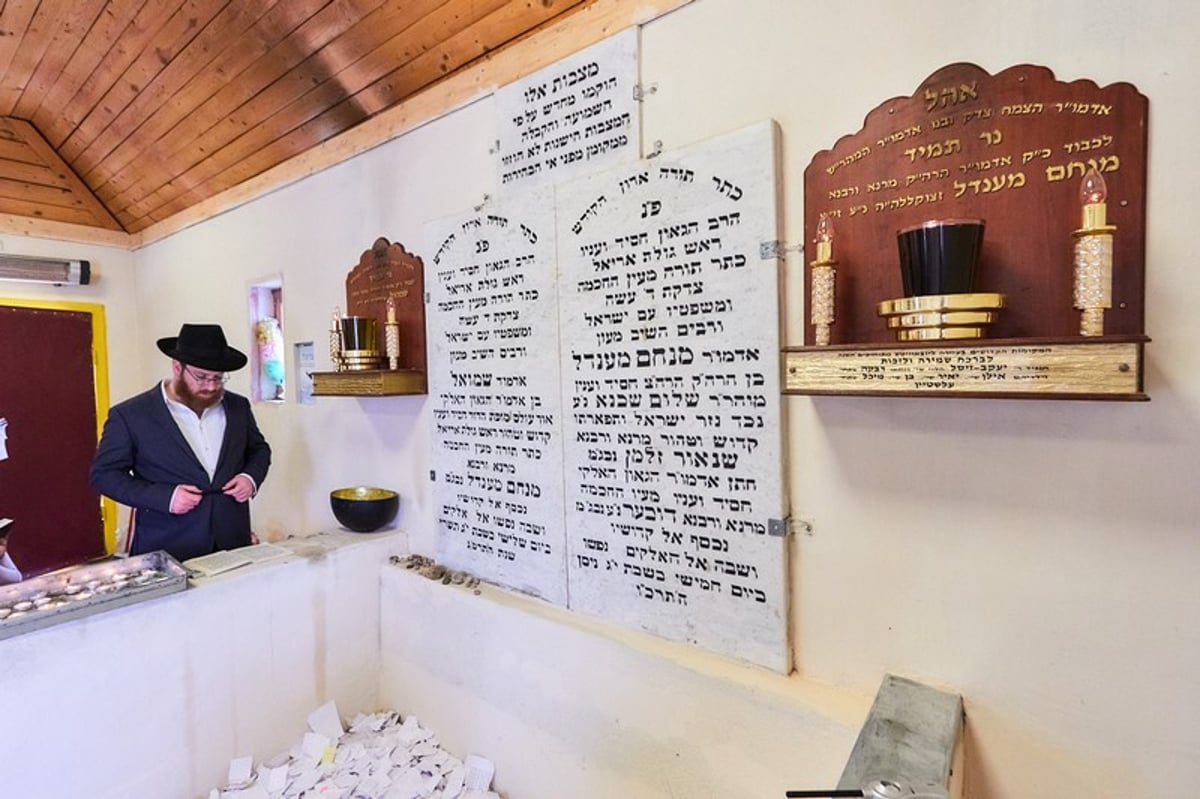 מצבות אלו
הוקמו מחדש על פי
השמועה והקבלה
המצבות הישנות לא הוזזו
ממקומן מפני אי הבהירות
כתר תורה ארון הקודש
פ״נ
הרב הגאון חסיד ועניו
ראש גולת אריאל
כתר תורה מעין החכמה
צדקת ד׳ עשה
ומשפטיו עם ישראל
ורבים השיב מעון
אדמו״ר מנחם מענדל
בן הרה״ק הרה״צ חסיד ועניו
מוהר״ר שלום שכנא נ״ע
נכד נזר ישראל ותפארתו
קדוש וטהור מרנא ורבנא
שניאור זלמן נבג״מ
חתן אדמו״ר הגאון האלקי
חסיד ועניו מעין החכמה
מרנא ורבנא דובער נ״ע נבג״מ
נכסף אל קדושיו
ושבה אל האלקים נפשו
ביום חמישי בשבת י״ג ניסן
ה׳תרכ״ו
כתר תורה ארון הקודש
פ״נ
הרב הגאון חסיד ועניו
ראש גולת אריאל
כתר תורה מעין החכמה
צדקת ד׳ עשה
ומשפטיו עם ישראל
ורבים השיב מעון
אדמור שמואל
בן אדמו״ר הגאון האלקי
אור עולם מופת הדור חסיד ועניו
קדוש וטהור ראש גולת אריאל
כתר תורה מעין החכמה
מרנא ורבנא
מנחם מענדל נבג״מ
נכסף אל קדושיו
ושבה נפשו אל אלקים
ביום שלישי בשבת י״ג תשרי
שנת ה׳תרמ״ג
אהל
אדמו״ר הצמח צדק ובנו אדמו״ר המהר״ש
נר תמיד
לכבוד כ״ק אדמו״ר הרה״ק מרנא ורבנא
מנחם מענדל זצוקללה״ה נ״ע זי״ע
לברכה שמירה ולזכות